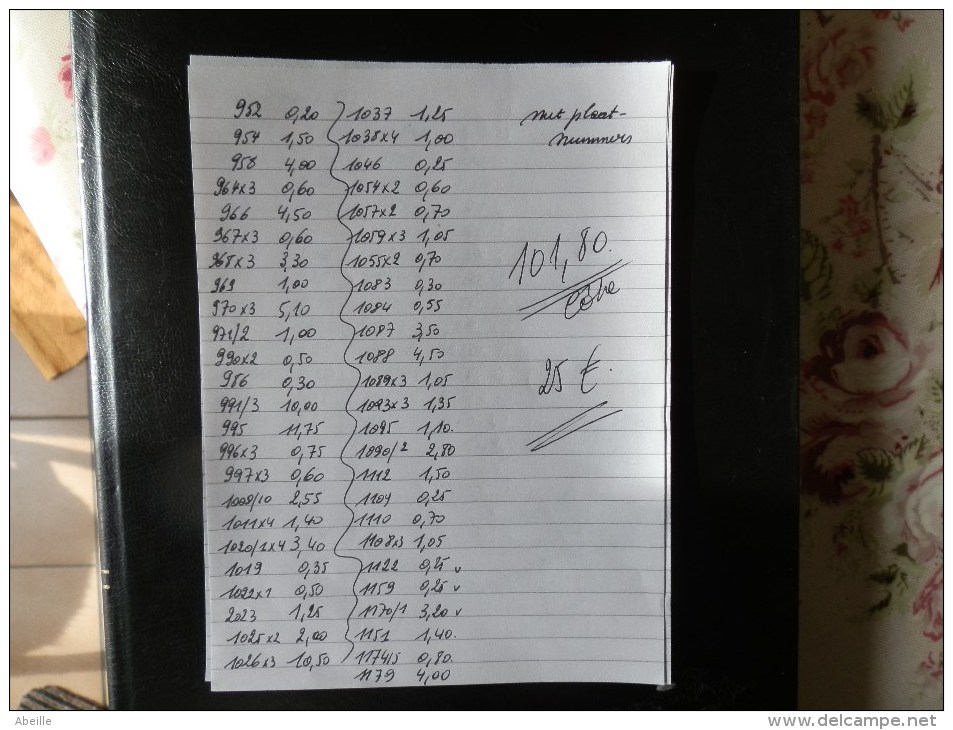 952 0,20
954 1,50
958 4,00
964x3 0,60
966 4,50
967x3 0,60
968x3 3,30
969 1,00
970x3 5,10
971/2 1,00
990x2 0,50
986 0,30
991/3 10,00
995 11,75
996x3 0,75
997x3 0,60
1008/10 2,55
1011x4 1,40
1020/1x4 3,40
1019 0,35
1022x1 0,50
2023 1,25
1025x2 2,00
1026x3 10,50
1037 1,25
1038x4 1,00
1046 0,25
1054x2 0,60
1057x2 0,70
1059x3 1,05
1055x2 0,70
1083 0,30
1084 0,55
1087 3,50
1088 4,50
1089x3 1,05
1093x3 1,35
1095 1,10.
1090/2 2,80
1112 1,50
1109 0,25
1110 0,70
1108x3 1,05
1122 0,25 v
1159 0,25 v
1170/1 3,20 v
1151 1,40.
1174/5 0,80.
1179 4,00
met plaat-
nummers
101,80.
côte
25 €.
Abeille
www.delcampe.net